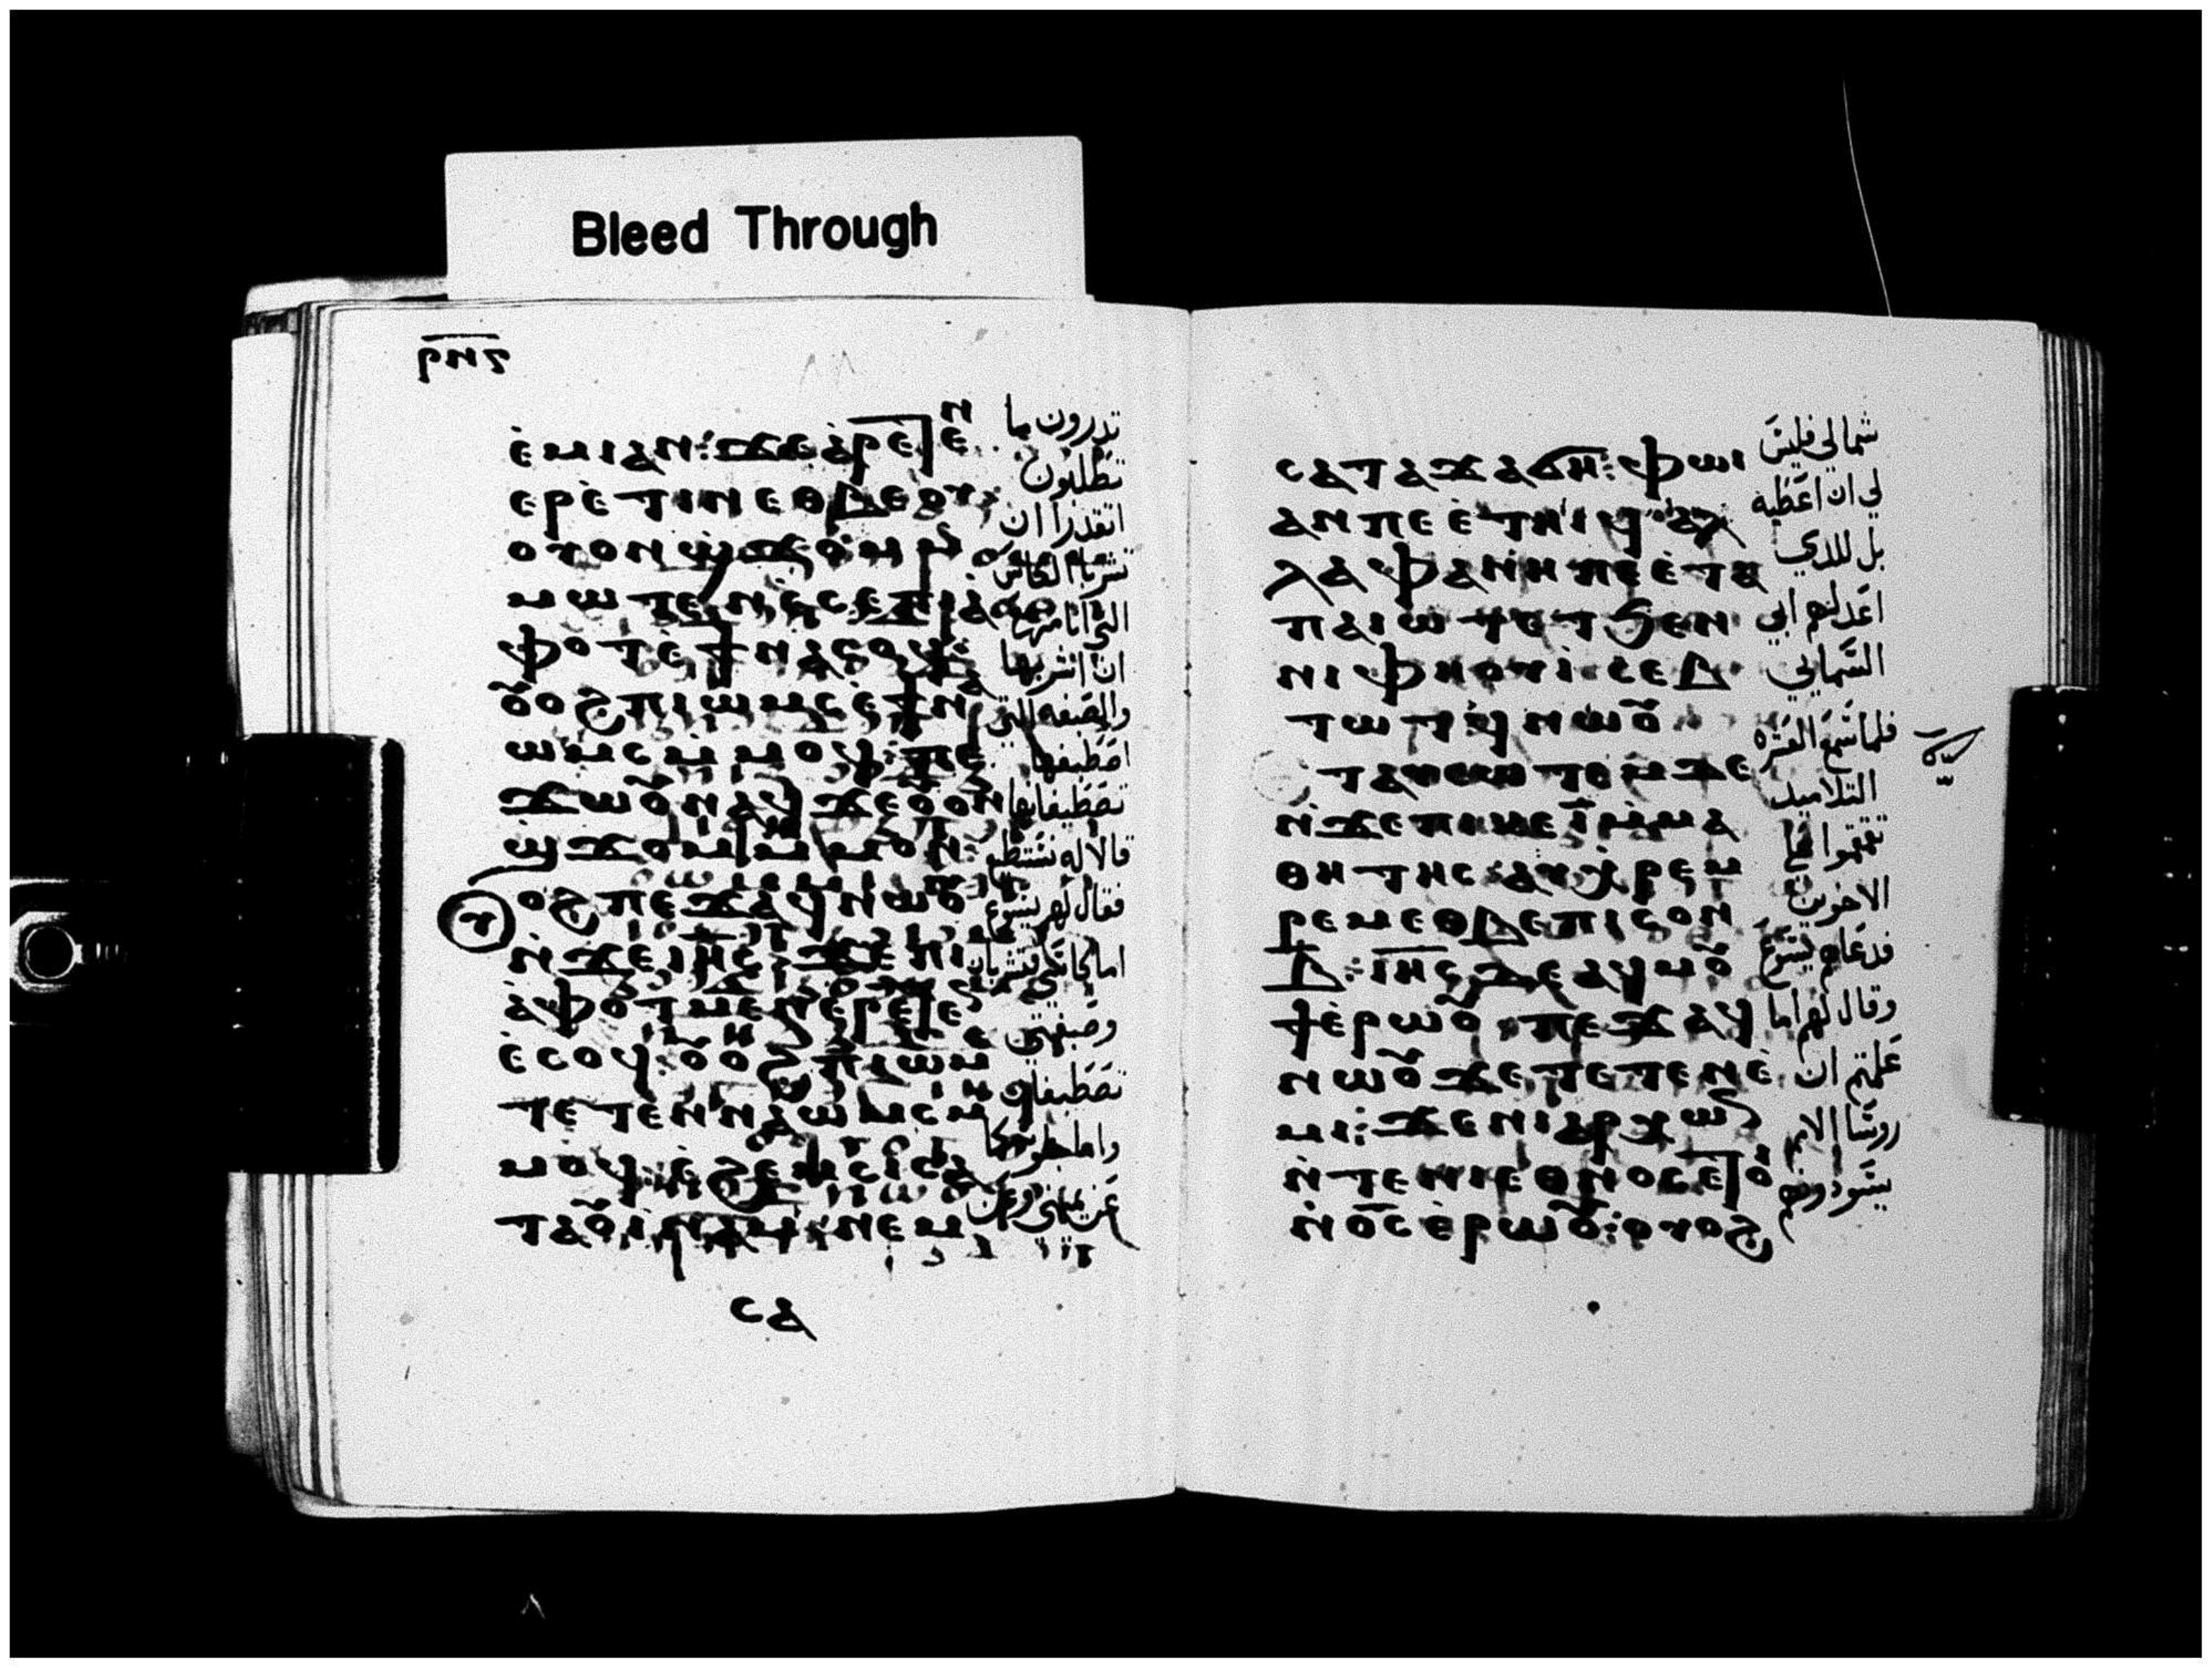 ⲣⲙⲋ
ⲉ̀ⲙⲓⲁⲛ: ϫⲉⲁ̀ⲣⲉⲧⲉⲛ
ⲉⲣⲉ̀ⲧⲓⲛ ⲉⲑⲃⲉⲟⲩ
ⲟⲩⲟⲛ ϣ̀ϫⲟⲙ ⲙ̀
ⲙⲱⲧⲉⲛ ⲉ̀ⲥⲉⲡⲓⲁ
ⲫⲟⲧ ⲉ̀ϯⲛⲁⲥⲟϥ:
ⲟ̅ⲟϩ ⲡⲓⲱⲙⲥ ⲉ̀ϯⲛⲁ
ⲱⲙⲥ ⲙ̀ⲙⲟϥ: ⲡⲉ
ϫⲱⲟ̅ ⲛⲁϥ ϫⲉⲟ̅ⲟⲛ
ϣ̀ϫⲟⲙ ⲙ̀ⲙⲟⲛ:
ⲟϩ ⲡⲉϫⲁϥ ⲛⲱⲟ̅
ⲛ̀ϫⲉⲓⲏ̅ⲥ: ϫⲉⲡⲓ
ⲁ̀ⲫⲟⲧ ⲙⲉⲛ ⲉⲣⲉⲧⲉ
ⲉ̀ⲥⲟϥ: ⲟ̅ⲟϩ ⲡⲓⲱⲙⲥ
ⲧⲉⲧⲉⲛⲛⲁⲱⲙⲥ ⲙ̀
ⲙⲟϥ: ⲉ̀ϩⲉⲙⲥⲓ ⲥⲁ
ⲧⲁⲟ̅ⲓ̀ⲛⲁⲙ: ⲛⲉⲙ
ⲥⲁ
تدرون ما
تطلبون
اتقدرا ان
تشربا الكاس
التي انا مهيا
ان اشربها
والصبغه التي
اصطبغها
تصطبغانها
قالا له نستطيع
فقال لهم يسوع
اما كاسي تشربان
وصبغتي
تصطبغان
واما جلوسكما
عن يميني وعن
ⲥⲁⲧⲁϫⲁϭⲏ: ⲫⲱⲓ
ⲁⲛ ⲡⲉ ⲉ̀ⲧⲏⲓϥ: ⲁⲗ
ⲗⲁ ⲫⲁⲛⲏ ⲡⲉ ⲉ̀ⲧⲁ
ⲡⲁⲓⲱⲧ ⲉⲧϧⲉⲛ
ⲛⲓⲫⲏⲟⲩⲓ ⲥⲉⲃ
ⲧⲱⲧϥ ⲛⲱⲟ̅
ⲧⲁⲩⲥⲱⲧⲉⲙ ⲇⲉ
ⲛ̀ϫⲉⲡⲓⲕⲉⲓ̅ ⲙ̀ⲙⲁ
ⲑⲏⲧⲏⲥ ⲁⲩⲭ̀ⲣⲉⲙ
ⲣⲉⲙ ⲉⲑⲃⲉ ⲡⲓⲥⲟⲛ
ⲃ̅: ⲓⲏ̅ⲥ ⲇⲉ ⲁϥⲙⲟ̅
ϯ ⲉ̀ⲣⲱⲟ̅ ⲡⲉϫⲁϥ
ⲛⲱⲟ̅ ϫⲉ ⲧⲉⲧⲉⲛⲉ̀
ⲙⲓ: ϫⲉ ⲛⲓⲁⲣⲭⲱⲛ
ⲛ̀ⲧⲉ ⲛⲓⲉⲑⲛⲟⲥ ⲉⲧⲟ
ⲛ̀ⲟ̅ⲥ ⲉ̀ⲣⲱⲟ̅: ⲟⲩⲟϩ
شمالي فليس
لي ان اعطيه
بل للذي
اعد لهم ابي
السمايي
فلما سمع العشره
التلاميد
تقمقموا على
الاخوين
فدعاهم يسوع
وقال لهم اما
علمتم ان
روسا الامم
يسودونهم
Bleed Through